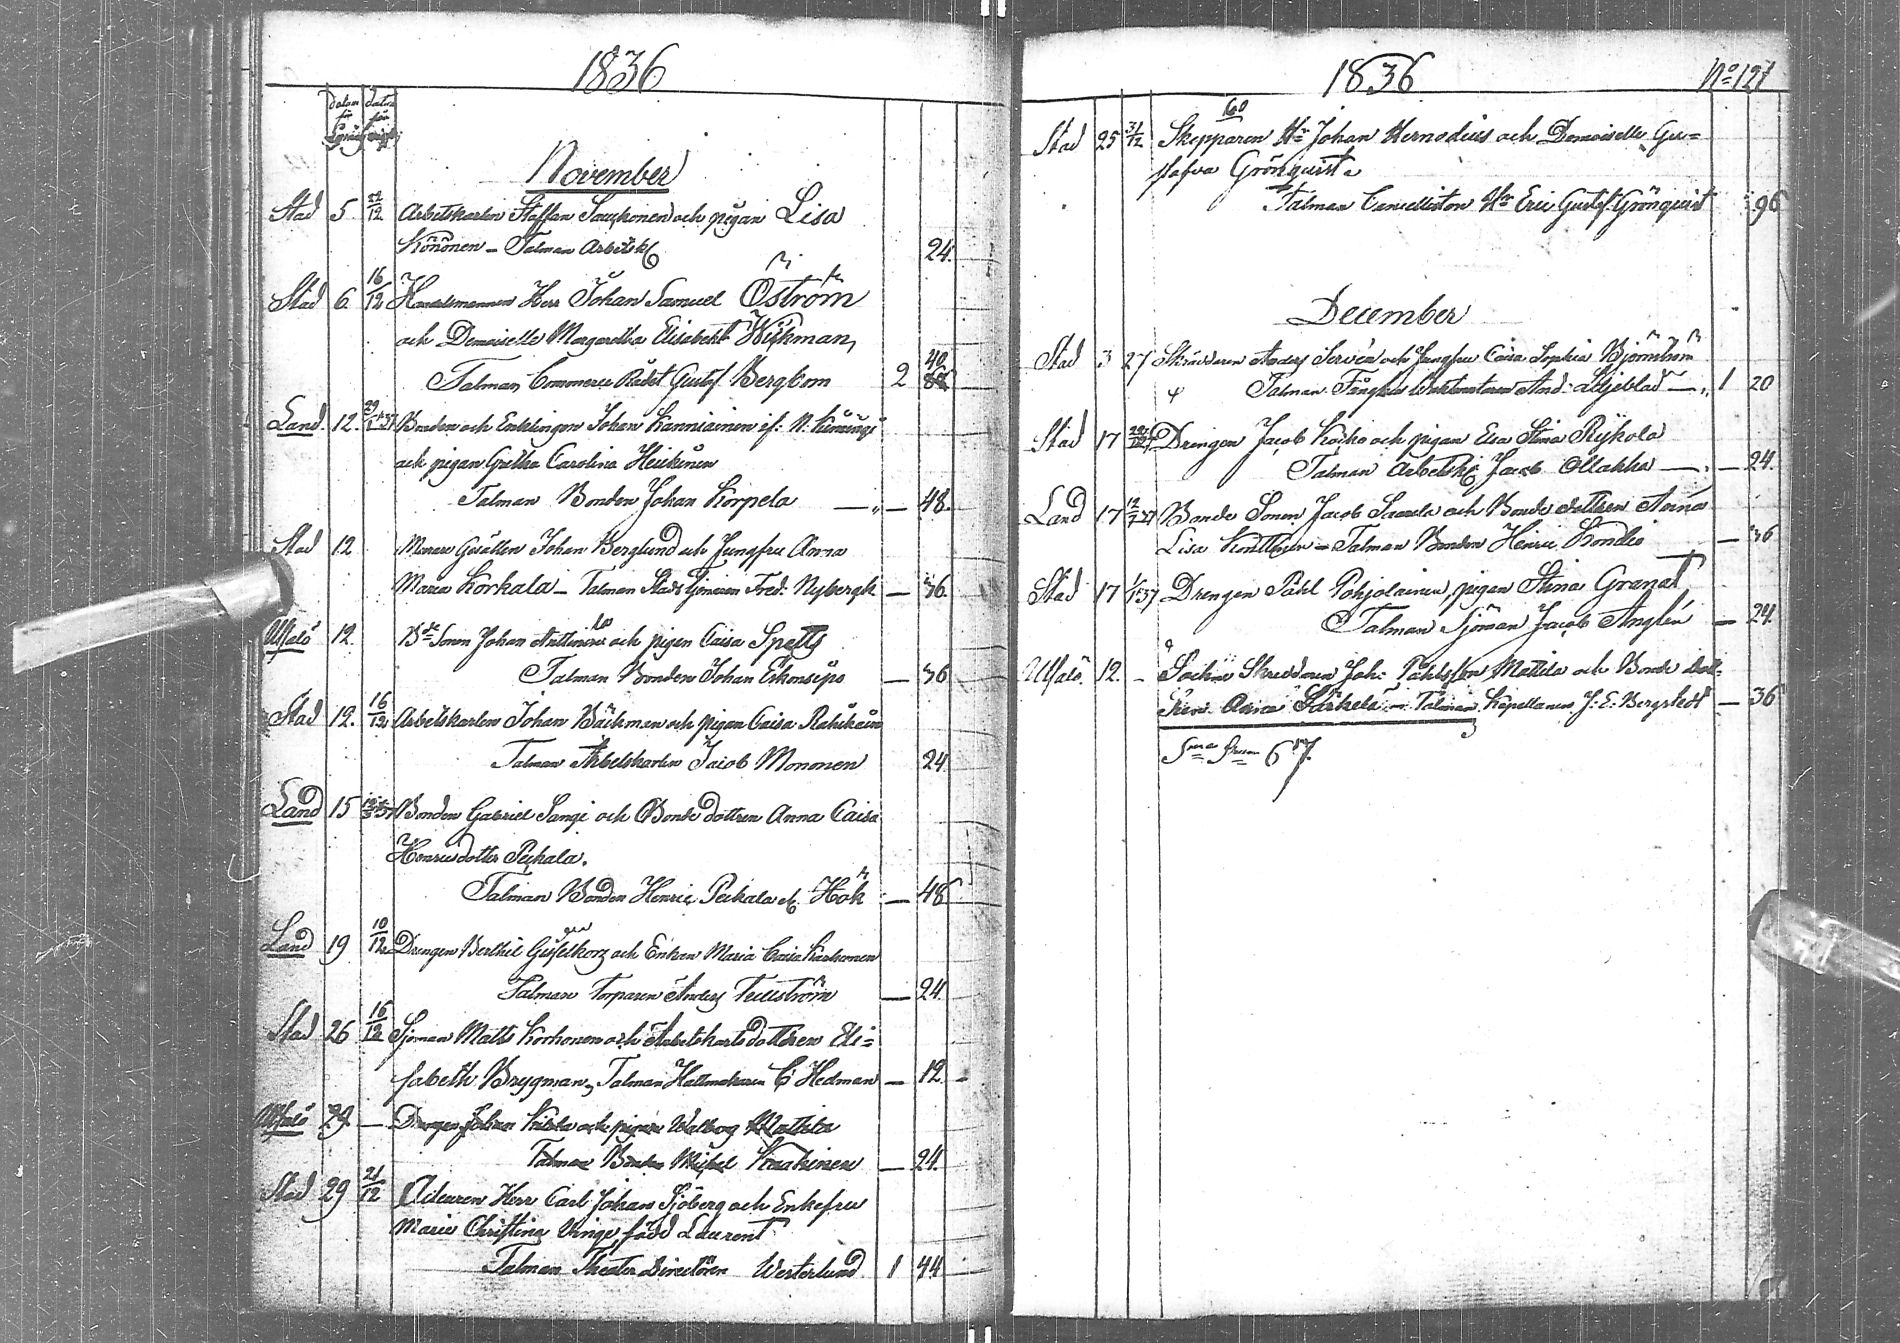 1836
datum för lysning
datum för vigsel
November
Stad 5. 22/12 Arbetskarlen Staffan Saukonen och pigan Lisa
Könönen – Talman Arbetsk. 24.
Stad 6. 16/12 Handelsmannen Herr Johan Samuel Öström
och Demoiselle Margaretha Elisabeth Wickman,
Talman, Commerce Rådet Gustof Bergbom 2 40
Land 12. 29/1 37 Bonden och Enklingen Johan Kanniainen if:
och pigan Gretha Carolina Heikinen
Talman Bonden Johan Korpela — „ — 48.
Stad 12 Murare Gesällen Johan Berglund och Jungfru Anna
Maria Korkala – Talman Stads Tjenaren Fred: Nybergh — 36.
Ulfalö 12. Bde Sonen Johan och pigan Caisa Spetts
Talman Bonden Johan — 36
Stad 12. 16/12 Arbetskarlen Johan Bäckman och pigan Caisa
Talman Arbetskarlen Jacob Mononen 24
Land 15 37 Bonden Gabriel Sangi och Bonde dottren Anna Caisa
Henricsdotter Pekkala.
Talman Bonden Henric Pekkala el. Hök — 48
Land 19 10/12 Drengen Berthil och Enkan Maria Caisa Karhonen
Talman Torparen Anders Tellström — 24.
Stad 26 16/12 Sjöman Matts Korhonen och Arbetskarls dottren Eli=
sabeth Brygman, Talman Hattmakaren C Hedman — 12 –
Ulfalö 29. — Drengen Johan och pigan Walborg Mattila
Talman Bonden Michel — 24.
Stad 29 21/12 Acteuren Herr Carl Johan Sjöberg och Enkefru
Maria Christina Vinge, född Laurent
Talman Theater Directören Westerlund 1 44
1836 No 127
60
Stad 25 31/12 Skepparen Hr Johan Hernodius och Demoiselle Gu=
stafva Grönquist.
Talman Cancellisten Hr Eric Gustof Grönquist 96
December
Stad 3 27 Skräddaren Anders Servén och Jungfru Caisa Sophia Björnström
Talman Fång And: Liljeblad — „ 1 20
Stad 17 Drengen Jacob Koisko och pigan Eva Stina Rykola
Talman Arbetsk. Jacob Ollakka — — 24.
Land 17 12/2 37 Bonde Sonen Jacob Saarela och Bonde dottren Anna
Lisa – Talman Bonden Henric Kondio — 36
Stad 17 1/1 37 Drengen Påhl Pohjolainen, pigan Stina Granat
Talman Sjöman Jacob Anglén — 24.
Ulfalö. 12. – Sockne Skreddaren Joh: Påhlsson Mattila och Bonde dott=
ren Anna Särkela – Talman Kapellanen J: E: Bergstedt — 36
Sma Srum 67.